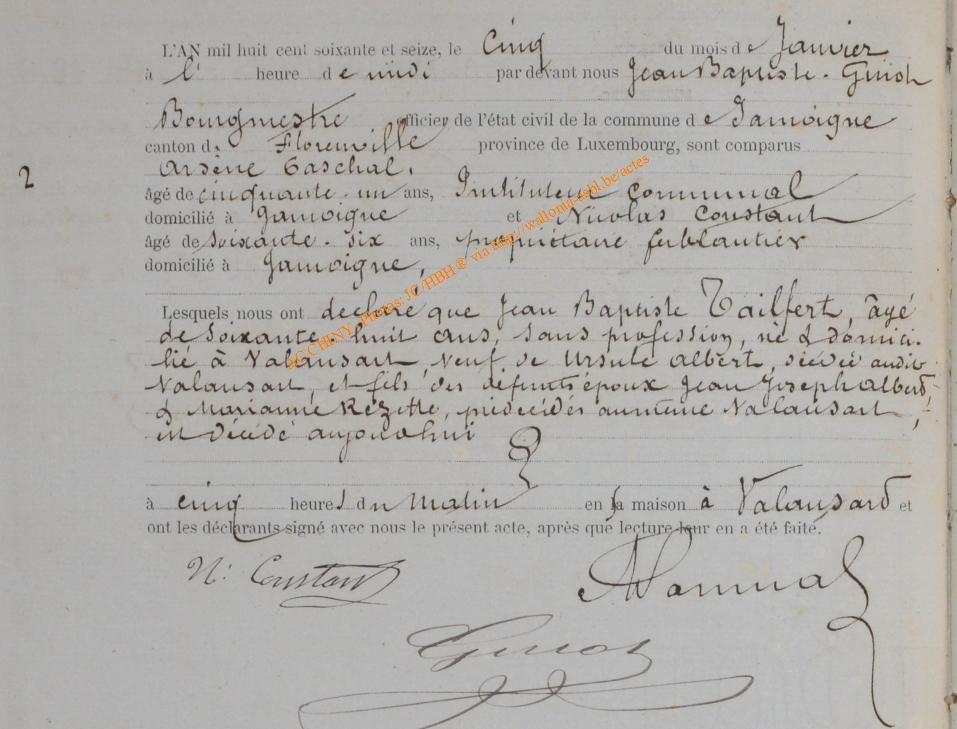 L'AN mil huit cent soixante et seize, le Cinq du mois de Janvier
à l' heure de midi par devant nous Jean Baptiste. Guiot
Bourgmestre officier de l'état civil de la commune de Jamoigne
canton d. Florenville province de Luxembourg, sont comparus
Arsène
2
âgé de cinquante un ans, Instituteur communal
domicilié à Jamoigne et Nicolas Constant
âgé de soixante. six ans, propriétaire ferblantier
domicilié à Jamoigne,
Lesquels nous ont declaré que Jean Baptiste Tailfert, âgé
de soixante huit ans, sans profession, né & domici-
lié à Valansart, veuf de Ursule Albert, décédée audit
Valansart, et fils des défunts époux Jean Joseph Albert,
& Marianne Rezette, prédécédés au même Valansart,
est décédé aujourd'hui
à cinq heures du Matin en sa maison à Valansard et
ont les déclarants signé avec nous le présent acte, après que lecture leur en a été faite.
N: Constant
Guiot
ACCHINY, Photos: JC /HBH © via http://wallonia-asbl.be/actes